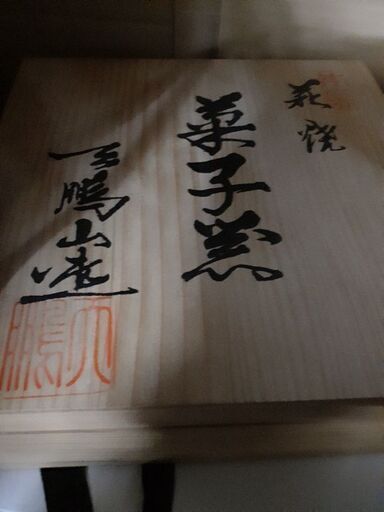 萩焼
菓子器
天鵬山造
天鵬